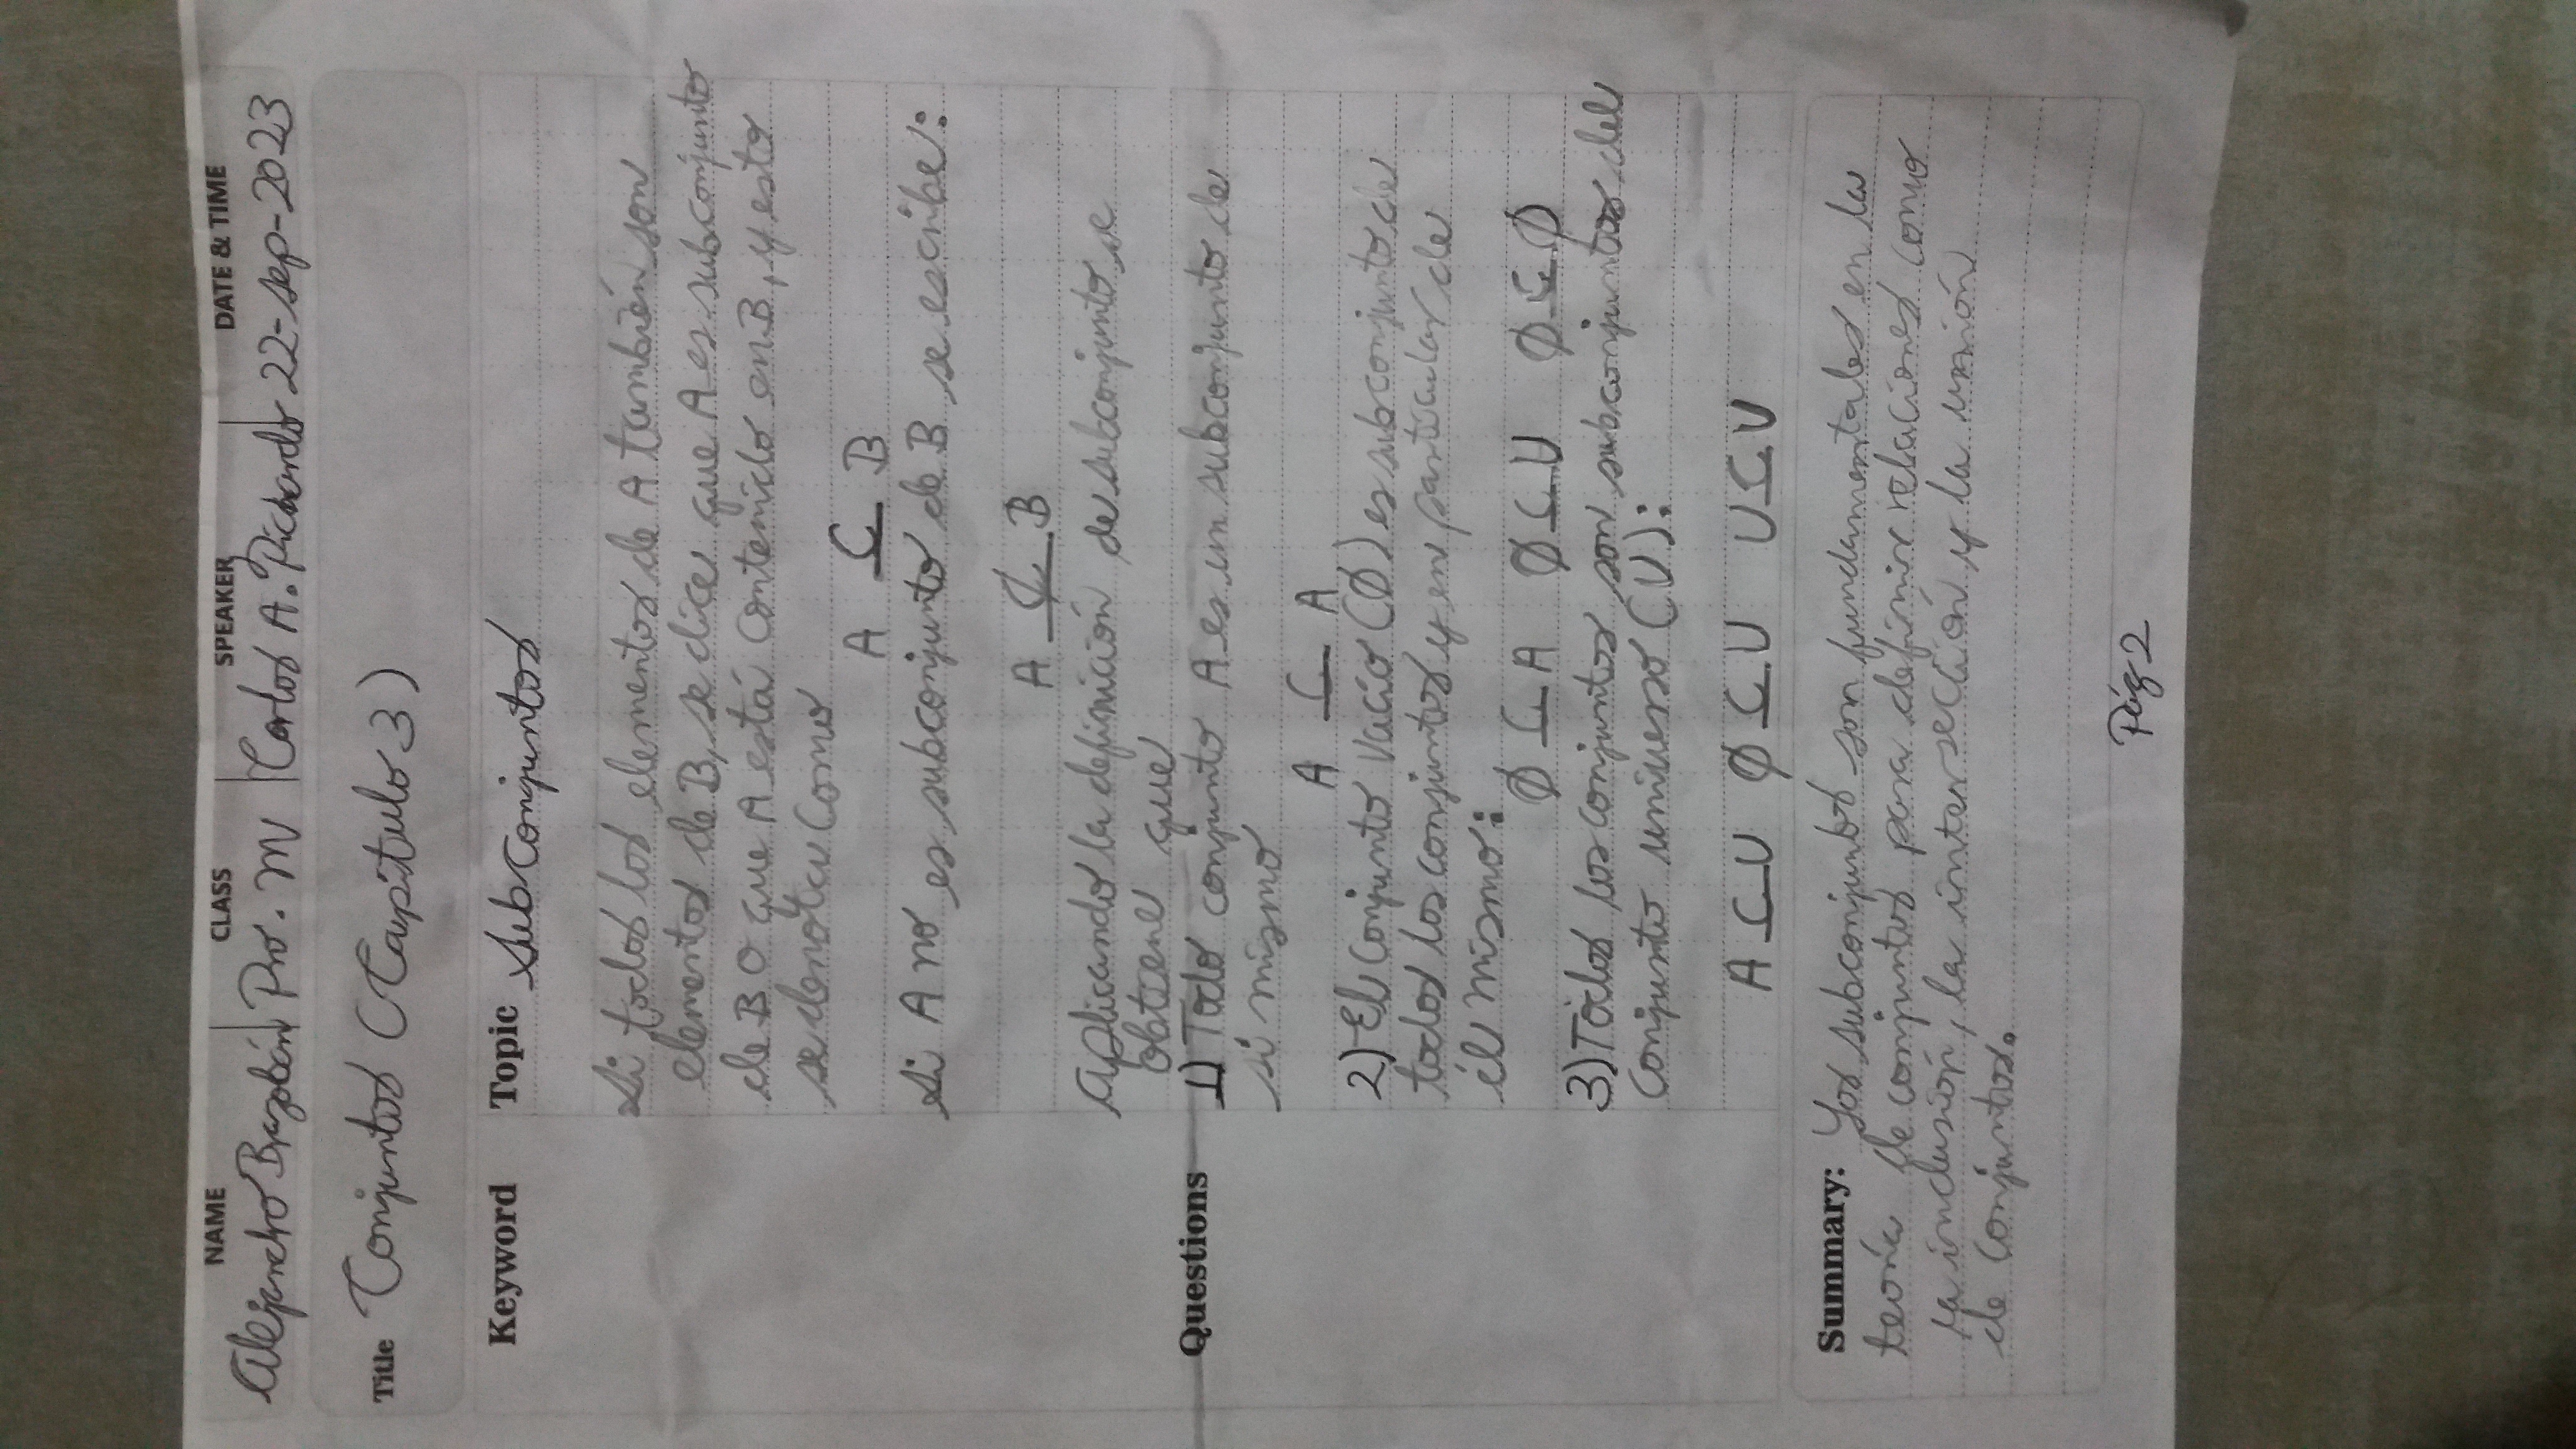 NAME CLASS SPEAKER DATE & TIME
Alejandro Brazobán Pro. M Carlos A. Pichardo 22-sep-2023
Title Conjuntos (Capítulo 3)
Keyword Topic Subconjuntos
Si todos los elementos de A también son
elementos de B, se dice que A es subconjunto
de B o que A está contenido en B, y esto
se denota como
A ⊆ B
Si A no es subconjunto de B se escribe:
A ⊈ B
Aplicando la definición de subconjunto se
obtiene que
Questions 1) Todo conjunto A es un subconjunto de
si mismo
A ⊆ A
2) El conjunto vacío (Ø) es subconjunto de
todos los conjuntos y en particular de
él mismo:
Ø ⊆ A Ø ⊆ U Ø ⊆ Ø
3) Todos los conjuntos son subconjuntos del
conjunto universo (U):
A ⊆ U Ø ⊆ U U ⊆ U
Summary: Los subconjuntos son fundamentales en la
teoría de conjuntos para definir relaciones como
la inclusión, la intersección y la unión
de conjuntos.
Pág 2